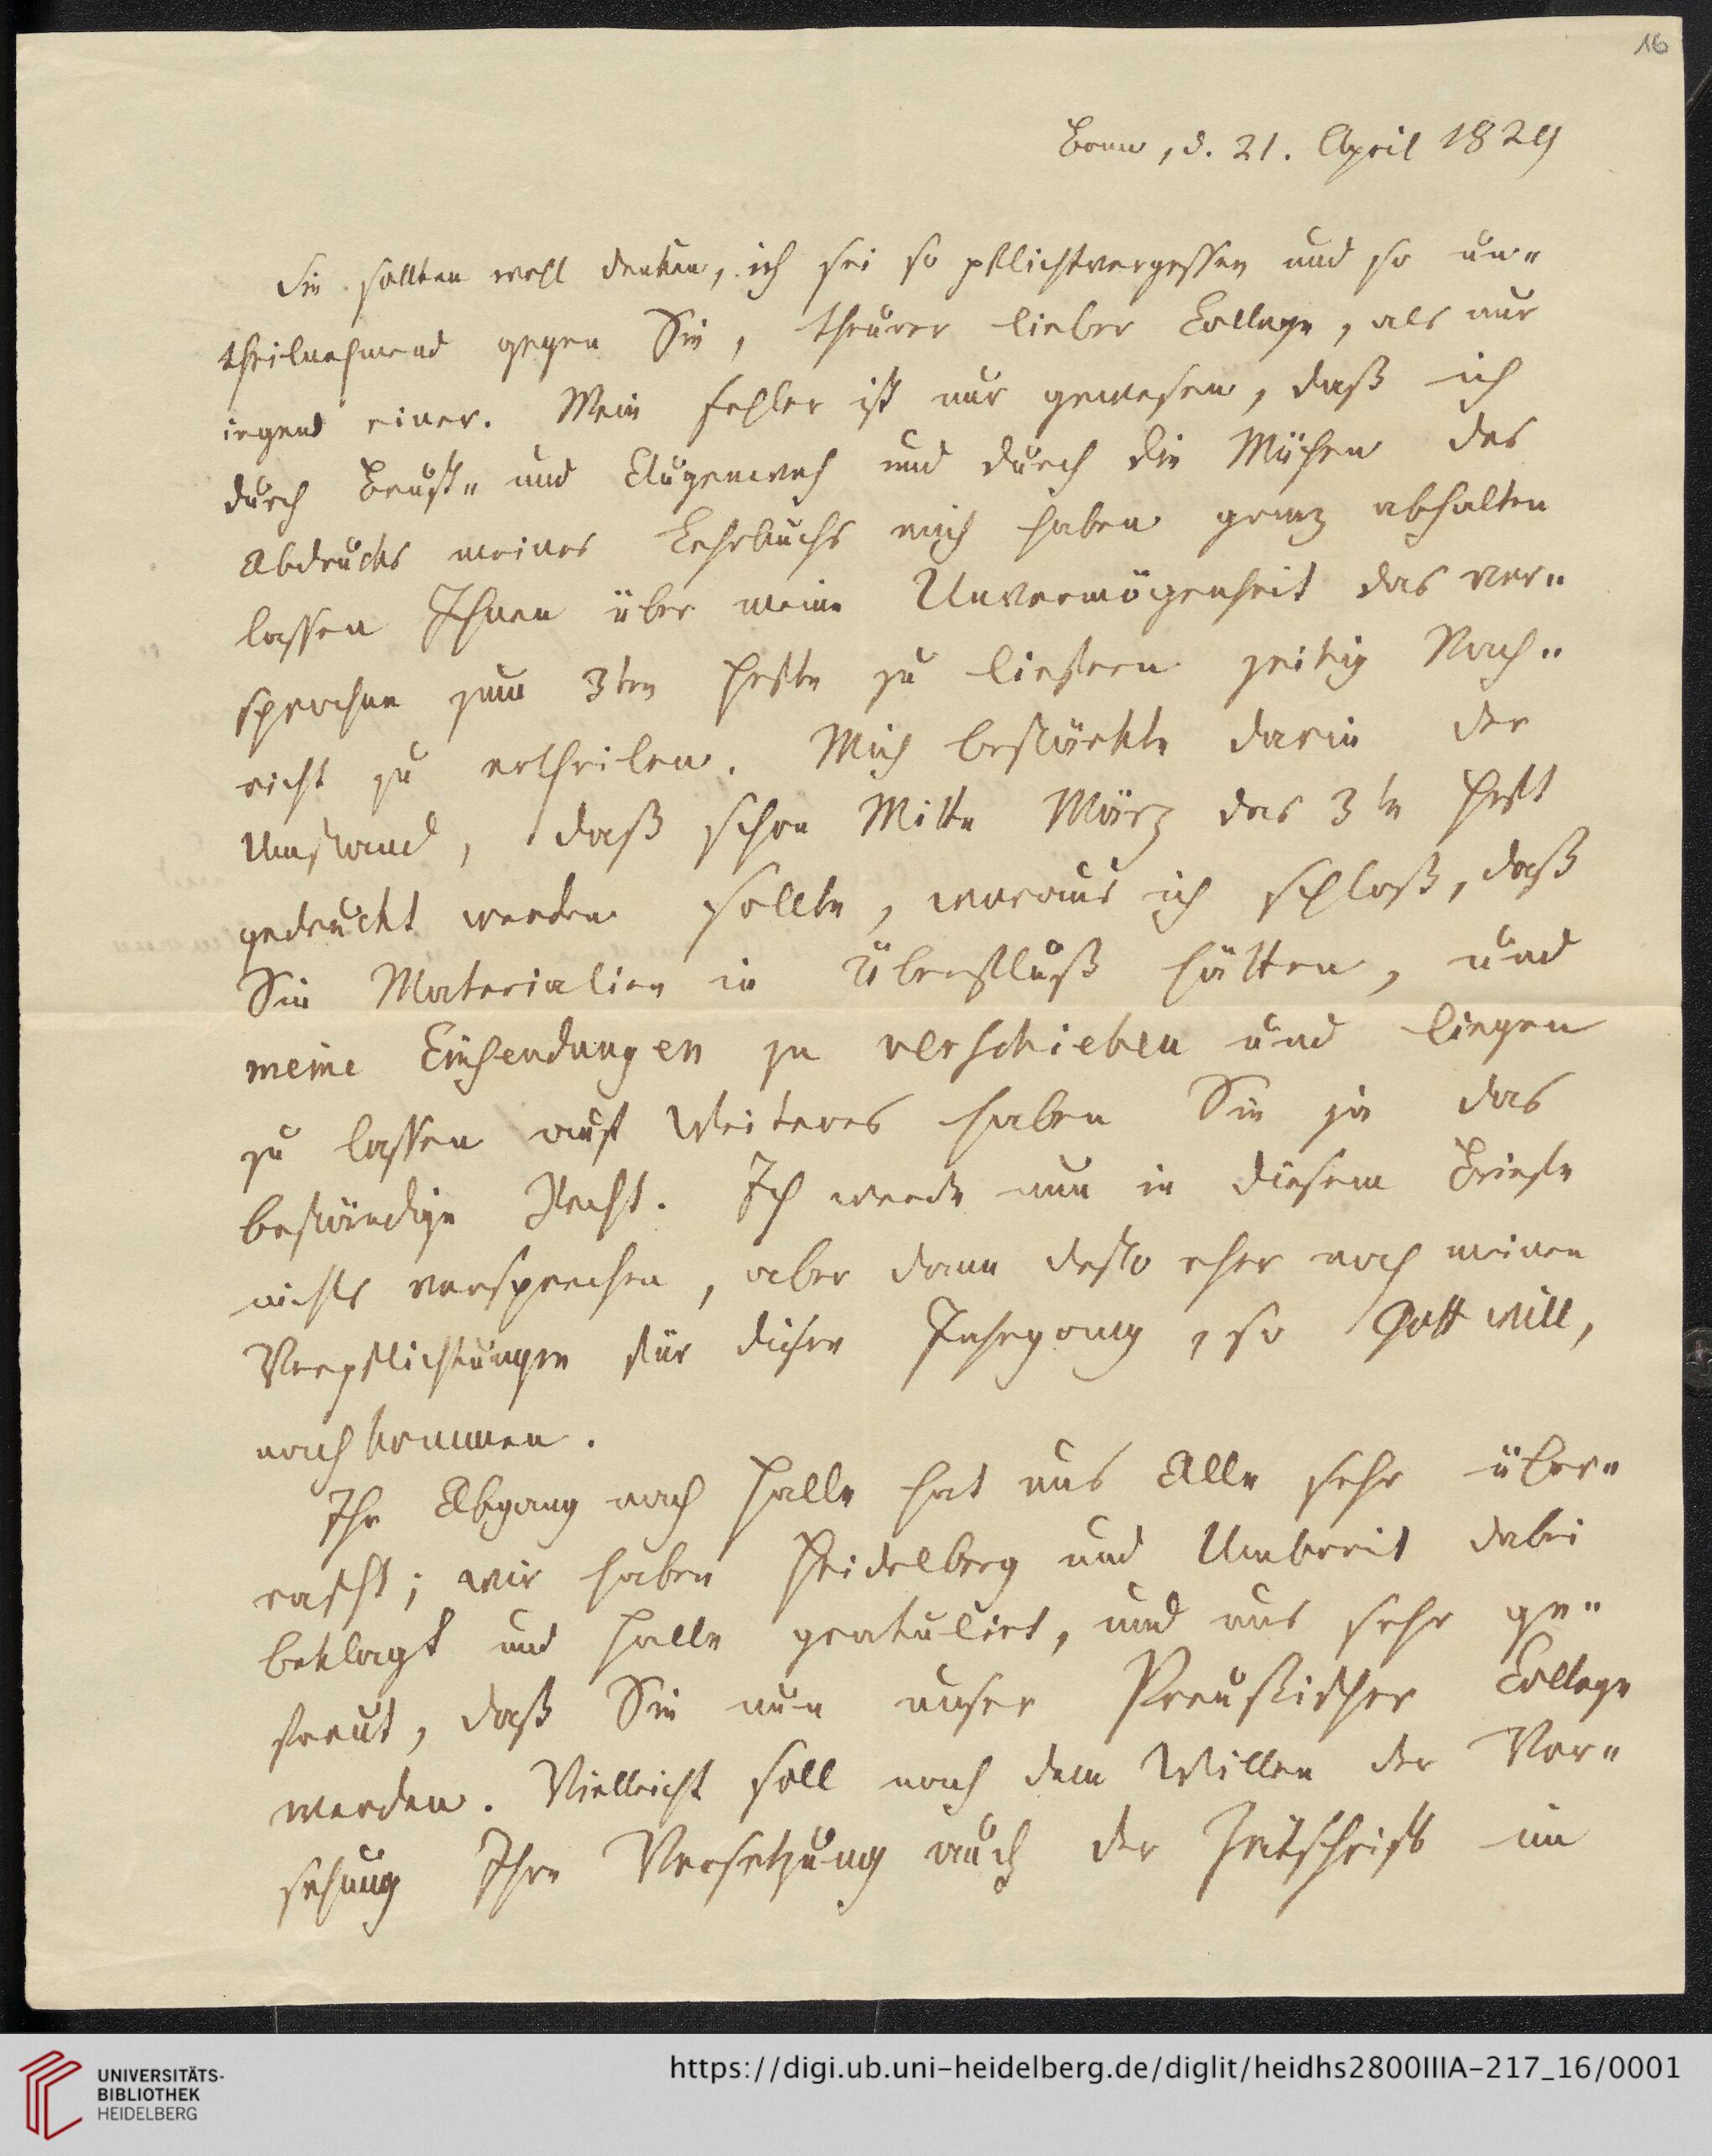 16
Bonn, d. 21. April 1829
Sie sollten wohl denken, ich sei so pflichtvergessen und so un-
theilnehmend gegen Sie, theurer lieber College, als nur
irgend einer. Mein Fehler ist nur gewesen, daß ich
durch Brust- und Augenweh und durch die Mühen des
Abdrucks meines Lehrbuchs mich haben ganz abhalten
lassen Ihnen über meine Unvermögenheit das ver-
sprochne zum 3ten Hefte zu liefern zeitig Nach-
richt zu ertheilen. Mich bestärkte darin der
Umstand, daß schon Mitte März das 3te Heft
gedruckt werden sollte, woraus ich schloß, daß
Sie Materialien in Überfluß hätten, und
meine Einsendungen zu verschieben und liegen
zu lassen auf Weiteres haben Sie ja das
beständige Recht. Ich werde nun in diesem Briefe
nichts versprechen, aber dann desto eher noch meinen
Verpflichtungen für diesen Jahrgang, so Gott will,
nachkommen.
Ihr Abgang nach Halle hat uns Alle sehr über-
rascht; wir haben Heidelberg und Umbreit dabei
beklagt und Halle gratulirt, und uns sehr ge-
freut, daß Sie nun unser Preußischer College
werden. Vielleicht soll nach dem Willen der Vor-
sehung Ihre Versetzung auch der Zeitschrift im
UNIVERSITÄTS-
BIBLIOTHEK
HEIDELBERG
https://digi.ub.uni-heidelberg.de/diglit/heidhs2800IIIA-217_16/0001